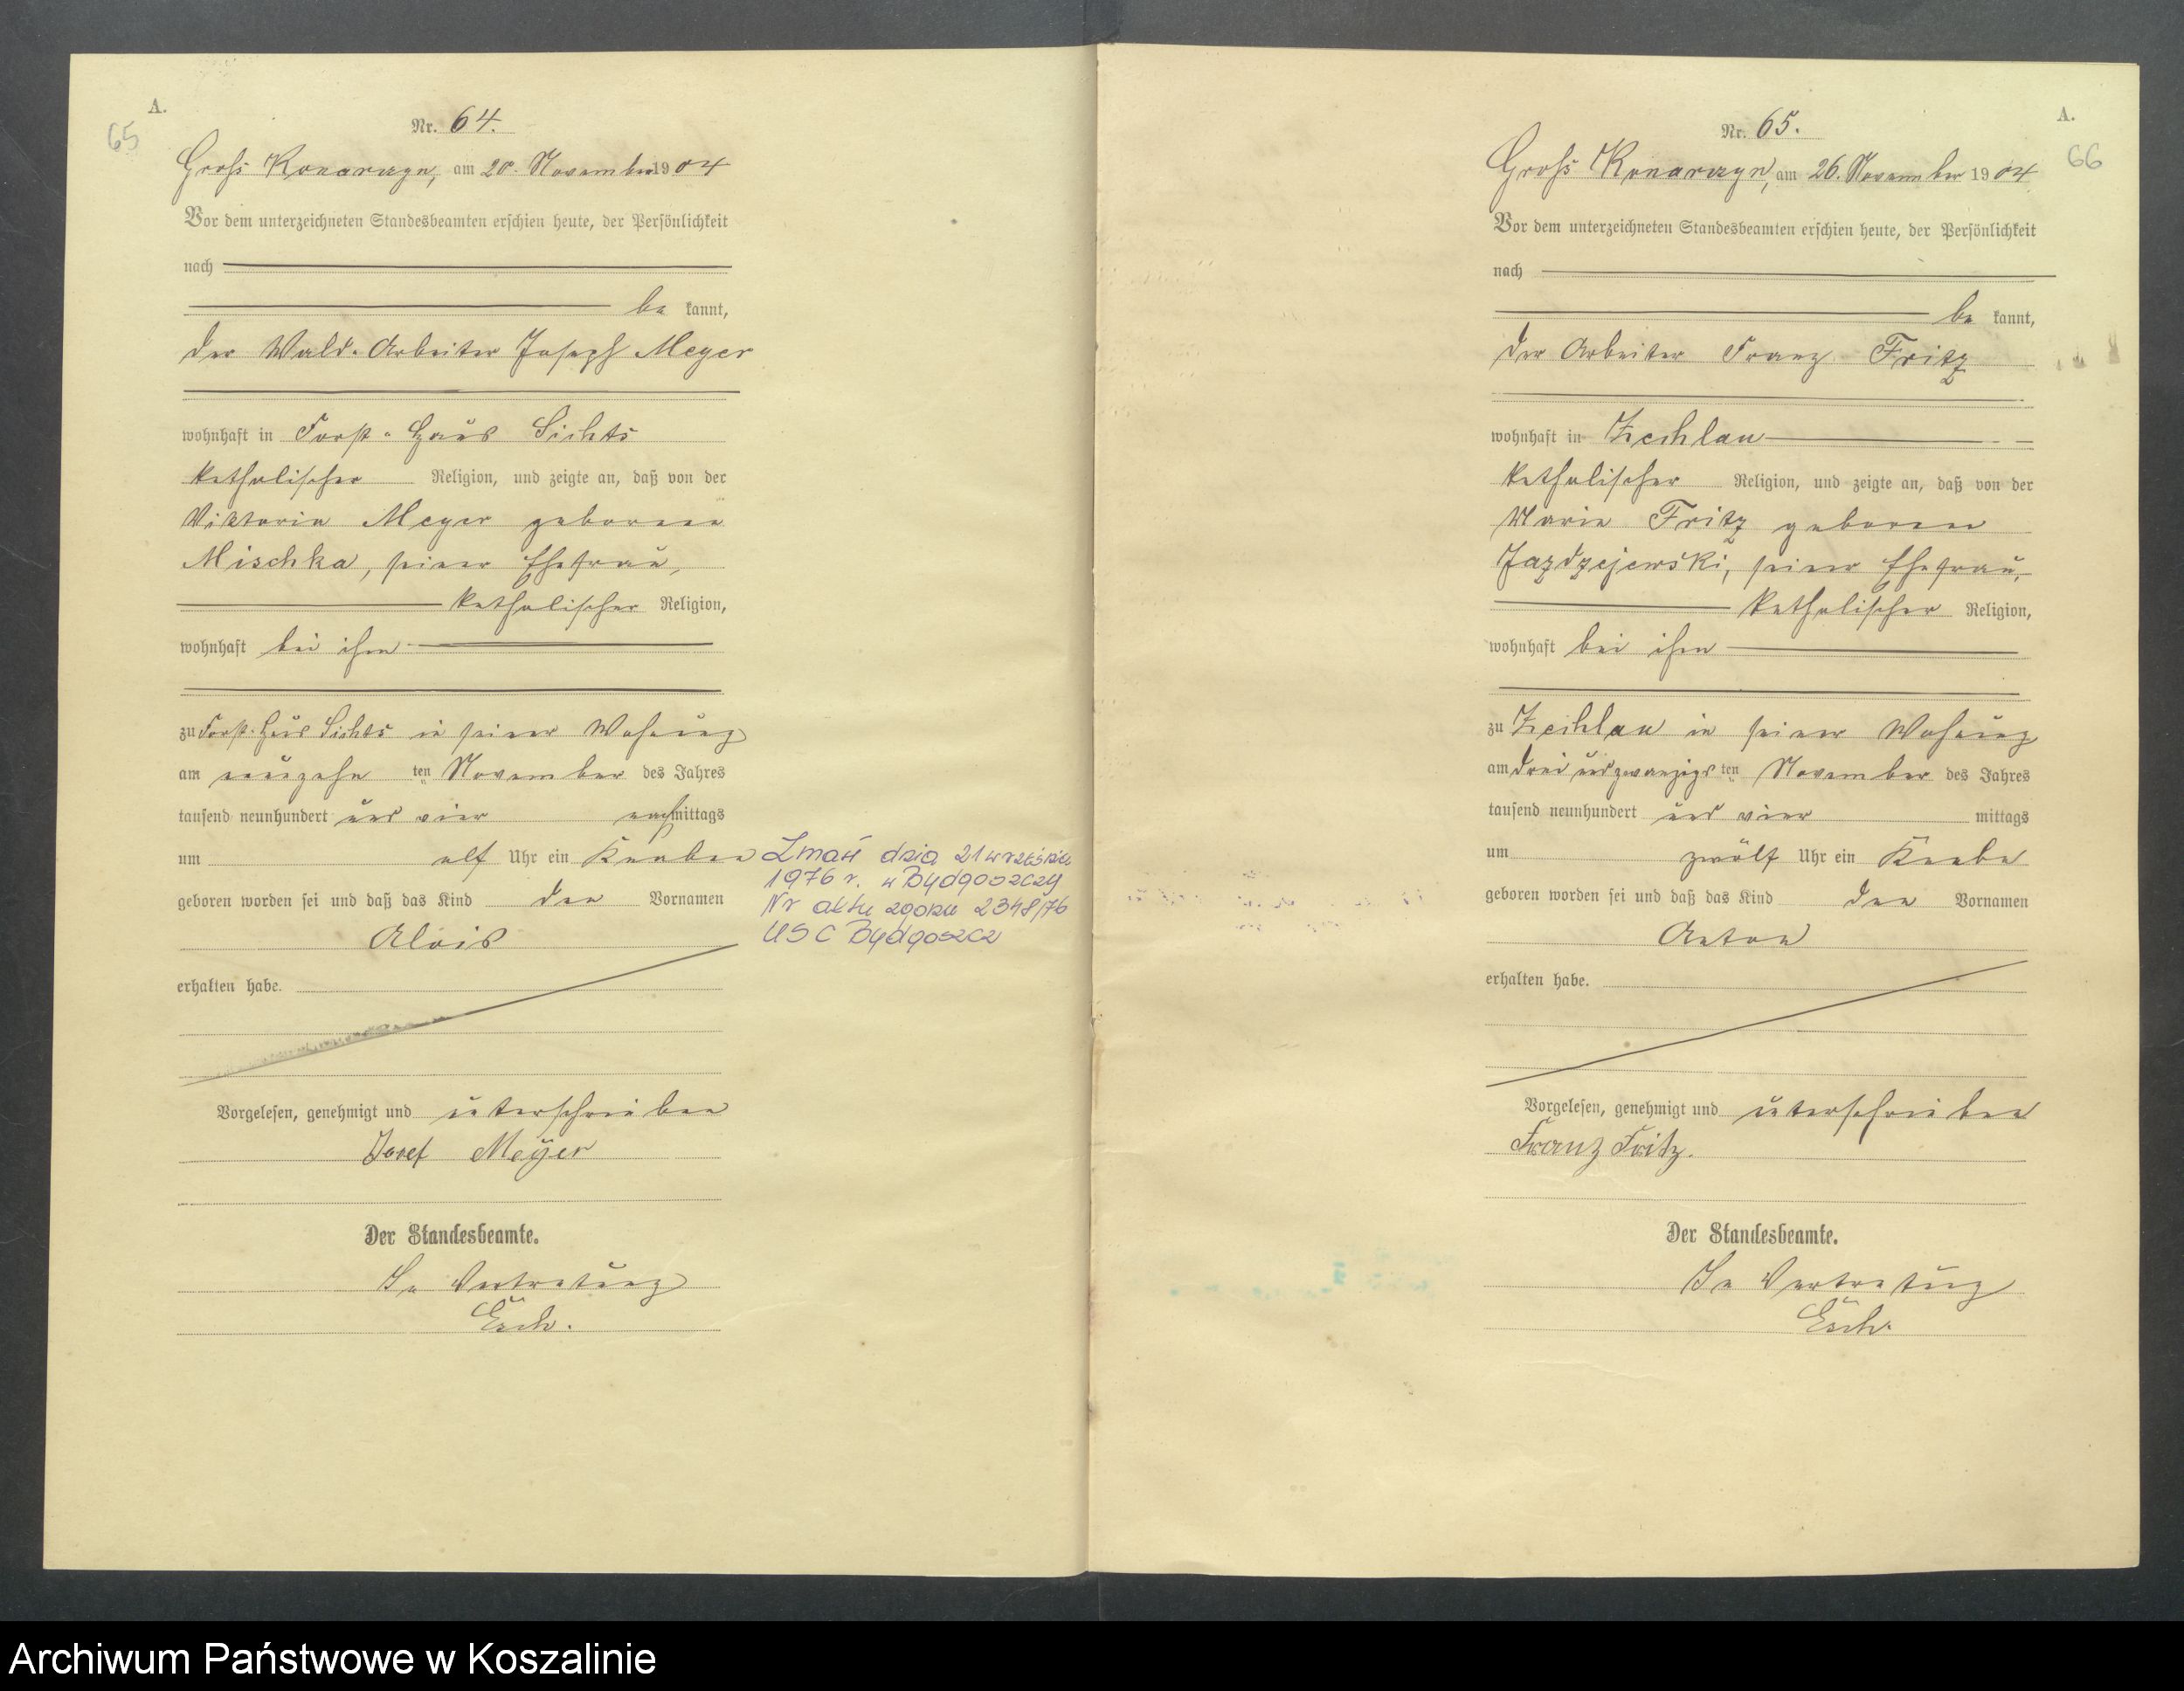 A.
65
Nr. 64.
Groß Konarczyn, am 20. November 1904
Vor dem unterzeichneten Standesbeamten erschien heute, der Persönlichkeit
nach
be kannt,
der Wald-Arbeiter Joseph Meyer
wohnhaft in Forst-Haus Sichts
katholischer Religion, und zeigte an, daß von der
Viktoria Meyer geborene
Mischka, seiner Ehefrau,
katholischer Religion,
wohnhaft bei ihm
zu Forst-Haus Sichts in seiner Wohnung
am neunzehn ten November des Jahres
tausend neunhundert und vier nachmittags
um elf Uhr ein Knaben
geboren worden sei und daß das Kind den Vornamen
Alois
erhalten habe.
Vorgelesen, genehmigt und unterschrieben
Josef Meyer
Der Standesbeamte.
In Vertretung
Esch.
Zmarł dnia 21 września
1976 r. w Bydgoszczy
Nr aktu zgonu 2348/76
USC Bydgoszcz
A.
66
Nr. 65.
Groß Konarczyn, am 26. November 1904
Vor dem unterzeichneten Standesbeamten erschien heute, der Persönlichkeit
nach
be kannt,
der Arbeiter Franz Fritz
wohnhaft in Zechlau
katholischer Religion, und zeigte an, daß von der
Maria Fritz geborene
Jazdzejewski, seiner Ehefrau,
katholischer Religion,
wohnhaft bei ihm
zu Zechlau in seiner Wohnung
am drei und zwanzigsten November des Jahres
tausend neunhundert und vier mittags
um zwölf Uhr ein Knabe
geboren worden sei und daß das Kind den Vornamen
Anton
erhalten habe.
Vorgelesen, genehmigt und unterschrieben
Franz Fritz.
Der Standesbeamte.
In Vertretung
Esch.
Archiwum Państwowe w Koszalinie